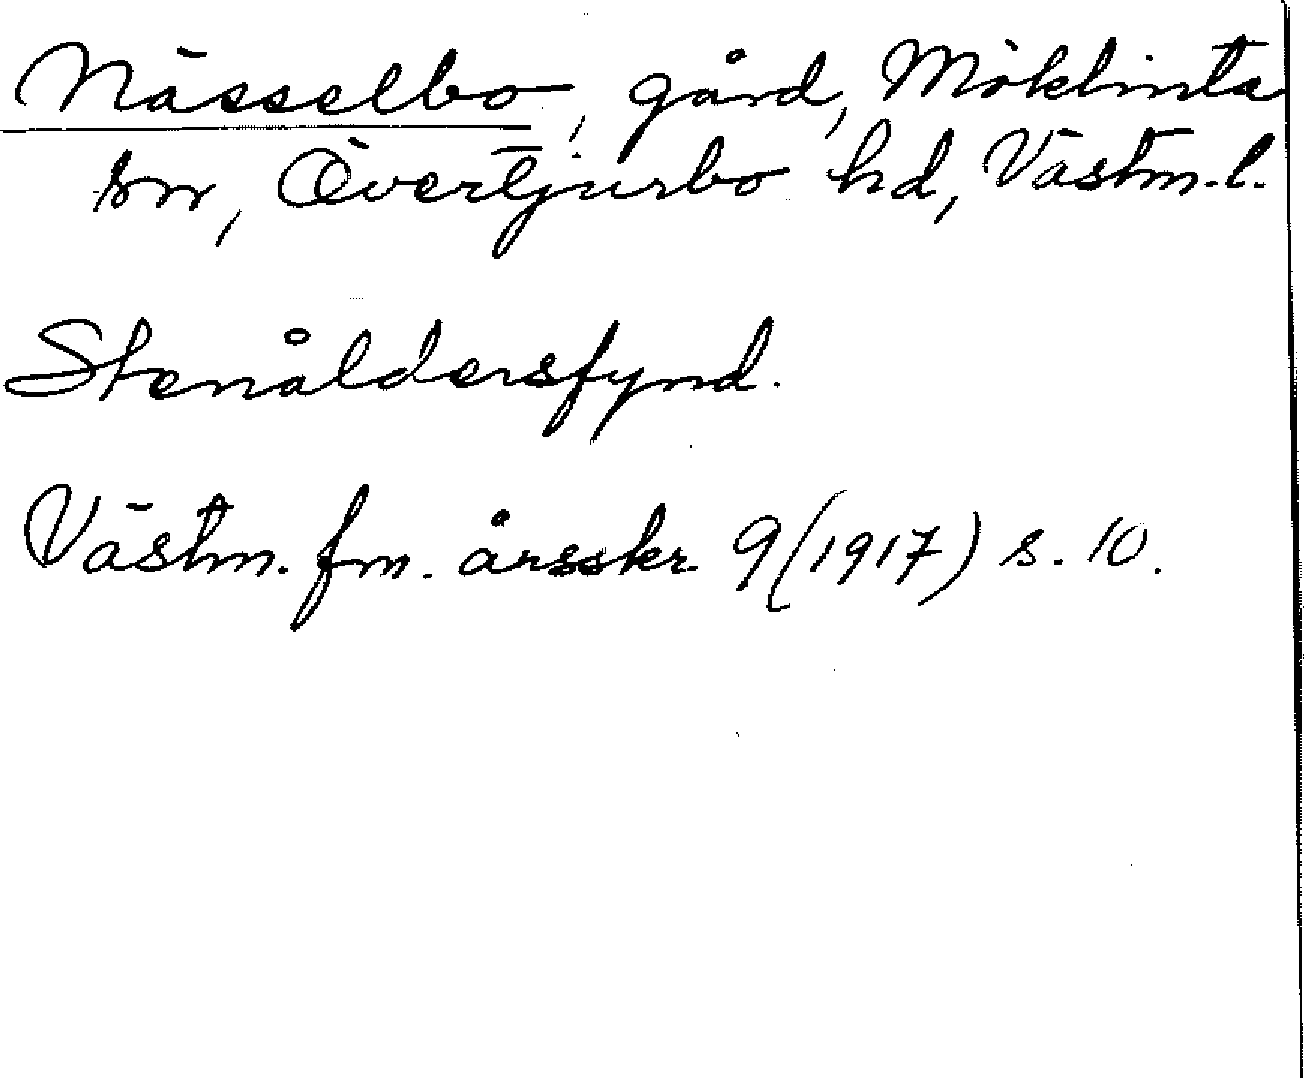 Nässelbo, gård, Möklinta
sn, Övertjurbo hd, Västm. l.
Stenåldersfynd.
Västm. fm. årsskr. 9 (1917) s. 10.